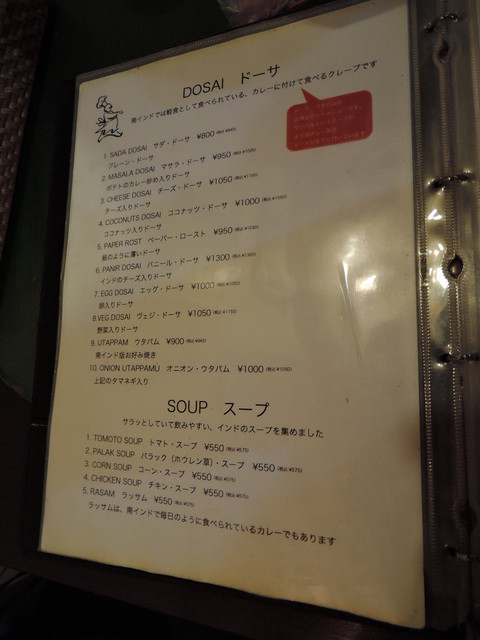 DOSAI ドーサ
南インドでは軽食として食べられている、カレーに付けて食べるクレープです
1. SADA DOSAI サダ・ドーサ ¥800
プレーン・ドーサ
2. MASALA DOSAI マサラ・ドーサ ¥950
ポテトのカレー炒め入りドーサ
3. CHEESE DOSAI チーズ・ドーサ ¥1050
チーズ入りドーサ
4. COCONUTS DOSAI ココナッツ・ドーサ ¥1000
ココナッツ入りドーサ
5. PAPER ROST ペーパー・ロースト ¥950
紙のように薄いドーサ
6. PANIR DOSAI パニール・ドーサ ¥1300
インドのチーズ入りドーサ
7. EGG DOSAI エッグ・ドーサ ¥1000
卵入りドーサ
8.VEG DOSAI ヴェジ・ドーサ ¥1050
野菜入りドーサ
9. UTAPPAM ウタパム ¥900
南インド版お好み焼き
10. ONION UTAPPAMU オニオン・ウタパム ¥1000
上記のタマネギ入り
SOUP スープ
サラッとしていて飲みやすい、インドのスープを集めました
1. TOMOTO SOUP トマト・スープ ¥550 (税込 ¥575)
2. PALAK SOUP パラック (ホウレン草)・スープ ¥550 (税込 ¥575)
3. CORN SOUP コーン・スープ ¥550 (税込 ¥575)
4. CHICKEN SOUP チキン・スープ ¥550 (税込 ¥575)
5. RASAM ラッサム ¥550 (税込 ¥575)
ラッサムは、南インドで毎日のように食べられているカレーでもあります